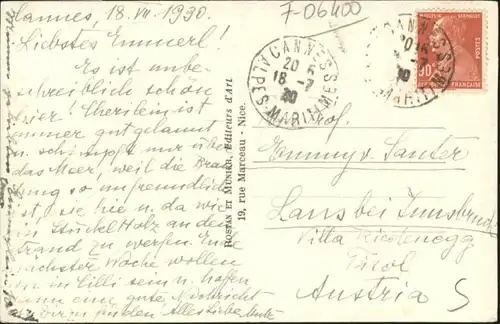 Cannes, 18. VII. 1930.
Liebstes Emmerl!
Es ist unbe-
schreiblich schön
hier! Eberlein ist
immer gut gelaunt
u. schimpft nur über
das Meer, weil die Bran
dung so unfreundlich
ist, sie hie u. da wie
ein Stückl Holz an den
Strand zu werfen. Ende
nächster Woche wollen
wir in Cilli sein u. hoffen
dann eine gute Nachricht
von Dir zu finden. Alles Liebe
7-06400
CANNES
20
18 -7
30
ALPES-MARITIMES
CANNES
30
MARITIMES
90
POSTES
FRANÇAISE
ROSTAN ET MUNIER, Editeurs d'Art
19, rue Marceau - Nice.
Emmy v. Santer
Lans bei Innsbruck
Villa
Tirol
Austria